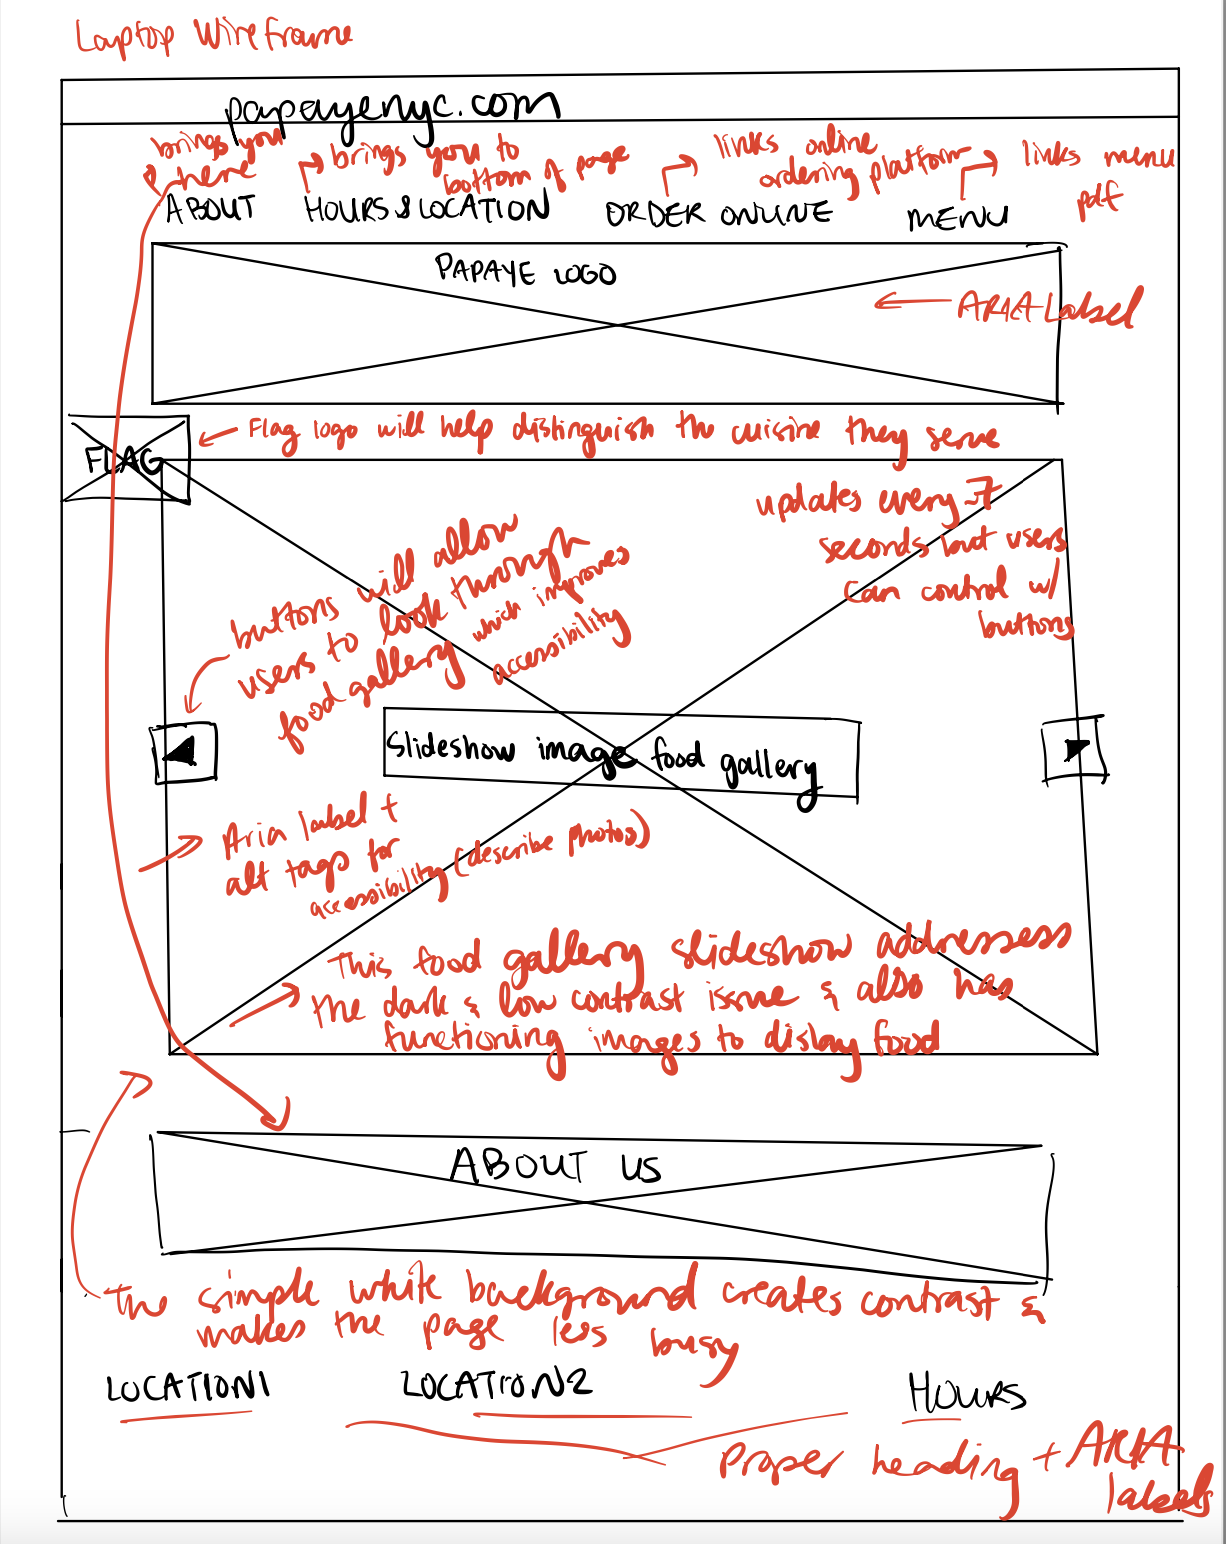 Laptop Wireframe
papayenyc.com
brings you
here
brings you to
bottom of page
links online
ordering platform
links menu
pdf
ABOUT
HOURS & LOCATION
ORDER ONLINE
MENU
PAPAYE LOGO
ARIA Label
FLAG
Flag logo will help distinguish the cuisine they serve
updates every 7
seconds but users
can control w/
buttons
buttons will allow
users to look through
food gallery which improves
accessibility
Slideshow image food gallery
Aria label +
alt tags for
accessibility (describe photos)
This food gallery slideshow addressess
the dark & low contrast issue & also has
functioning images to dislay food
ABOUT US
The simple white background creates contrast &
makes the page less busy
LOCATION1
LOCATION2
HOURS
Proper heading + ARIA
labels